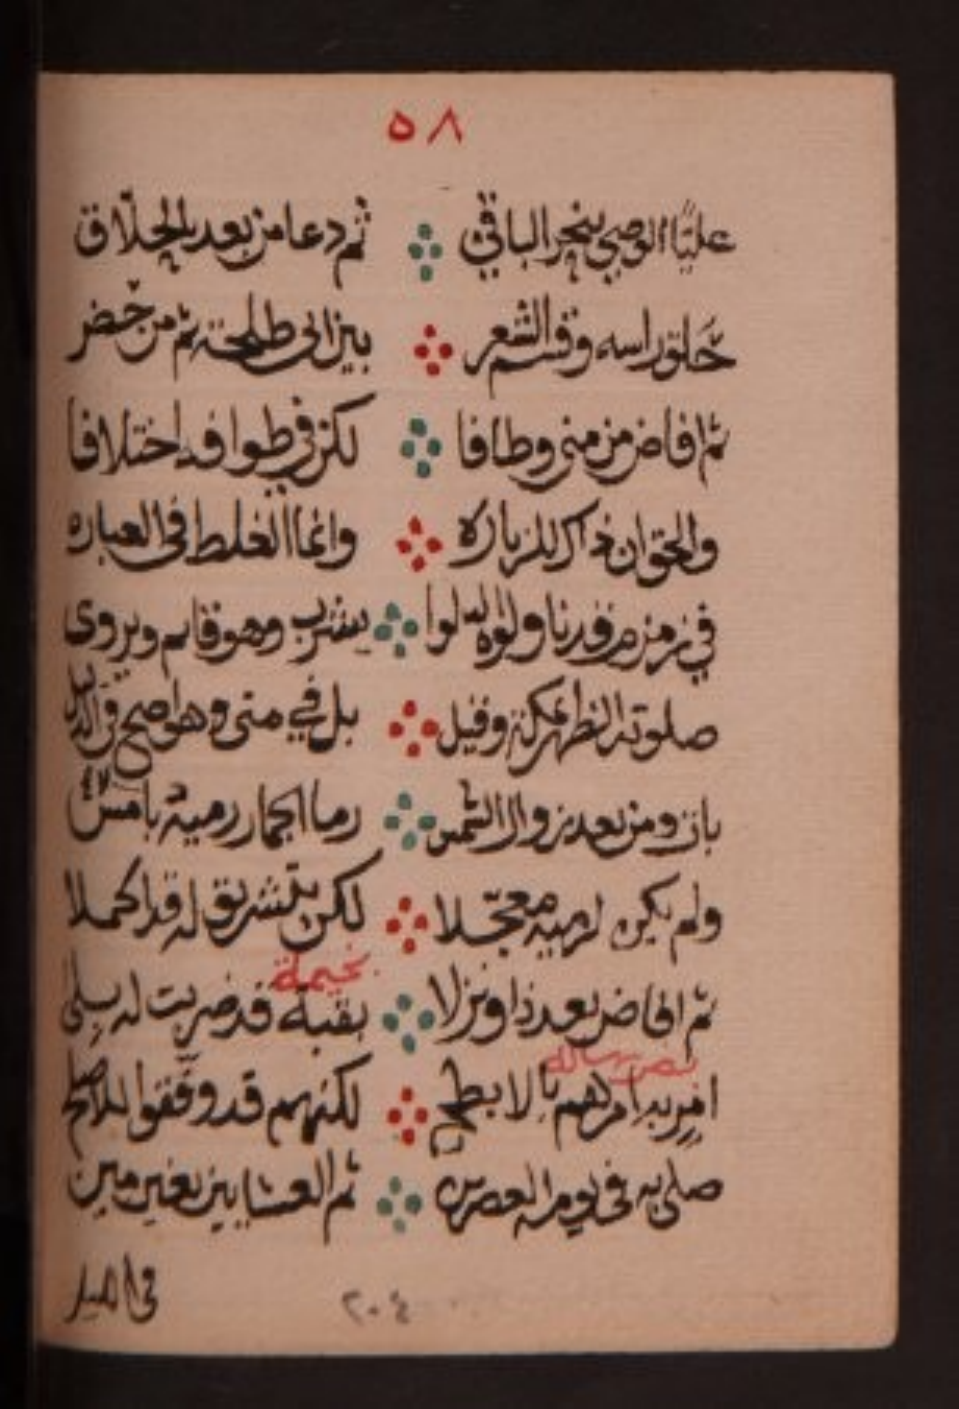 ٥٨
عليّا الوصي ينحر الباقي ثم دعا من بعد بالحلّاق
حلق راسه وقسم الشعر بين ابى طلحة ثم من حضر
ثم افاض من منى وطافا لكن في طوافه اختلافا
والحق ان ذاك للزياره وانما الغلط فى العباره
في زمزم وقد ناولوه الدلوا يشرب وهو قائم ويروى
صلوته الظهر بمكة وقيل بل في منى وهو اصح في الدليل
بان ومن بعد زوال الشمس رما الجمار رمية بامس
ولم يكن لرميه معجّلا لكن بتشريق له قد اكملا
بخيمة
ثم افاض بعد ذا ونزلا بقبة قد ضربت له بلى
امر به امرهم بالابطح لكنهم قد وفّقوا للاصلح
صلى به فى يومه العصرين ثم العشايين بغير مين
٢٠٤